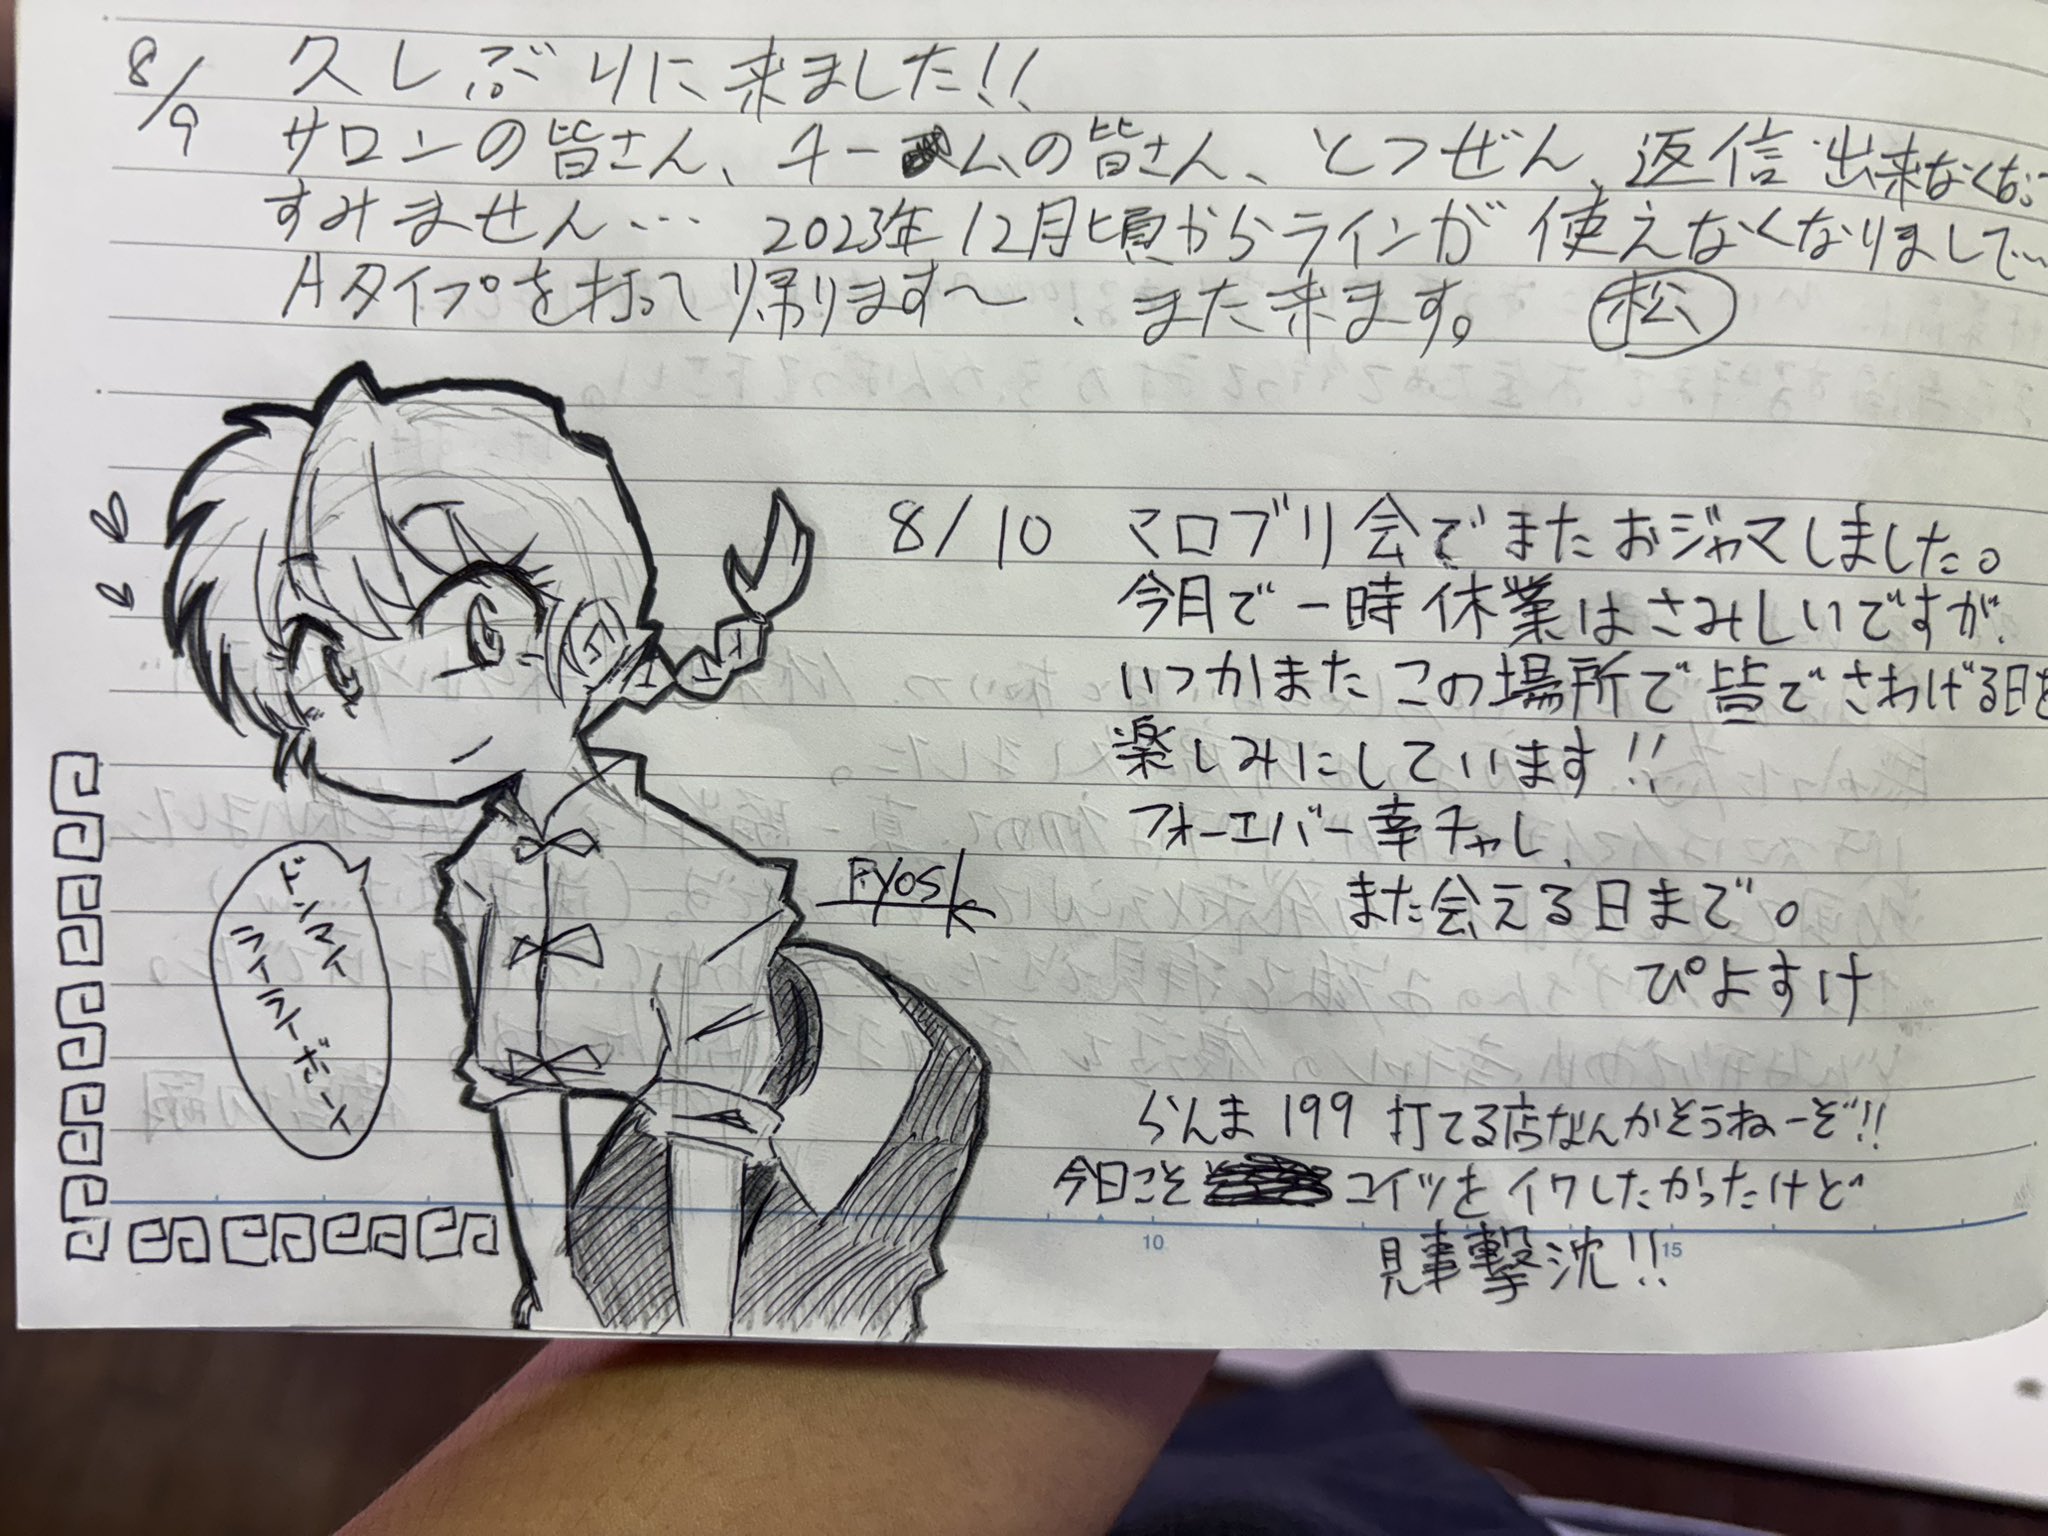 8/9 久しぶりに来ました!!
サロンの皆さん、チームの皆さん、とつぜん、返信出来なくなっ
すみません… 2023年12月頃からラインが使えなくなりまして…
Aタイプを打って帰ります〜、また来ます。 松
8/10 マロブリ会でまたおジャマしました。
今月で一時休業はさみしいですが、
いつかまたこの場所で皆でさわげる日を
楽しみにしています!!
フォーエバー幸チャレ、
また会える日まで。
ぴよすけ
PYOSK
ドンマイ
ライラライボーイ
らんま199打てる店なんかそうねーぞ!!
今日こそ コイツをイワしたかったけど
見事撃沈!!
10 15